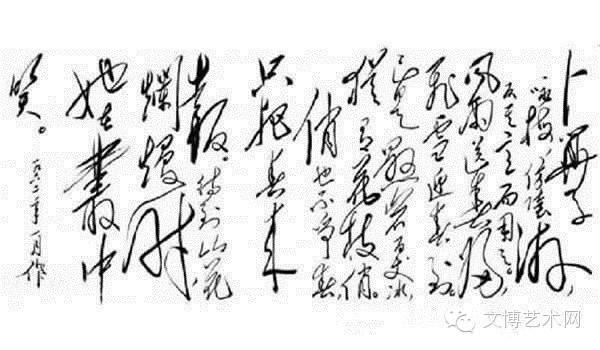 卜算子
咏梅 读陆游，
反其意而用之。
风雨送春归，
飞雪迎春到。
已是悬岩百丈冰，
犹有花枝俏。
俏也不争春，
只把春来
报。待到山花
爛熳时，
她在叢中
笑。
年一月作
文博艺术网